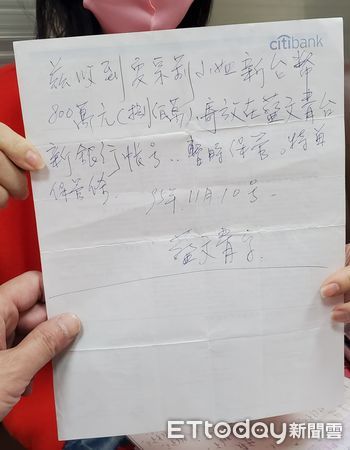 citibank
茲收到 小姐新台幣
800萬元(捌佰萬),寄放在藍文青台
新銀行帳号..暫時保管。特
保管條. 95年11月10号.
藍文青字.
ETtoday新聞雲